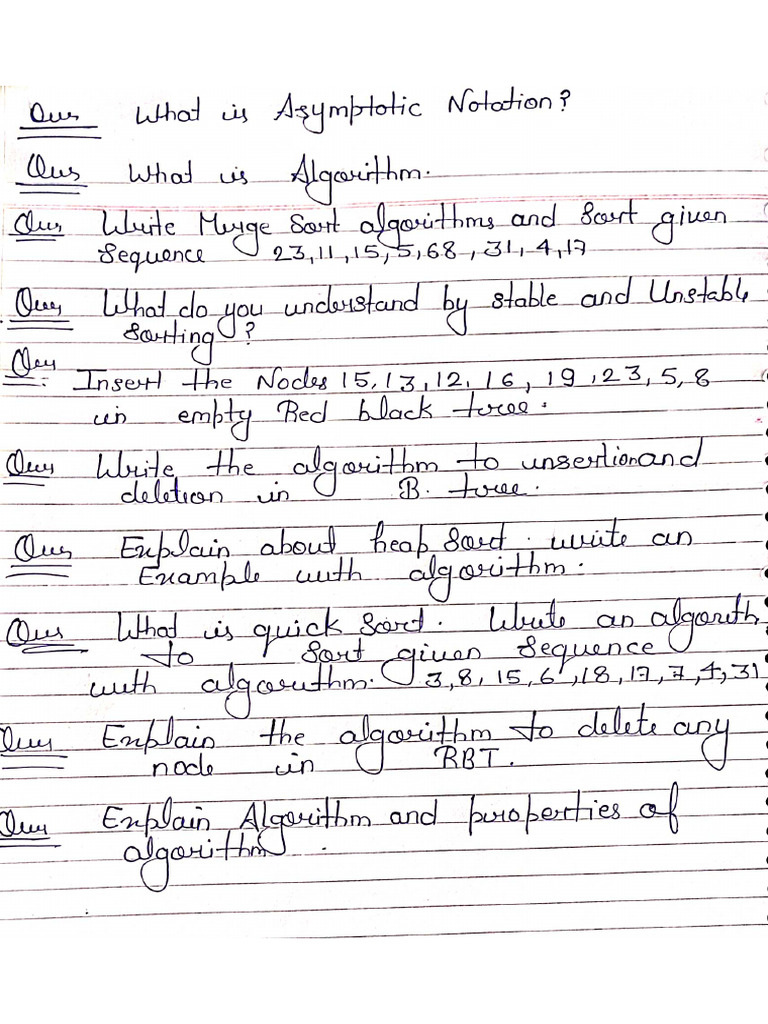 Ques What is Asymptotic Notation?
Ques What is Algorithm.
Ques Write Merge Sort algorithms and Sort given
Sequence 23, 11, 15, 5, 68, 31, 4, 17
Ques What do you understand by stable and Unstable
Sorting?
Ques: Insert the Nodes 15, 13, 12, 16, 19, 23, 5, 8
in empty Red black tree.
Ques Write the algorithm to insertion and
deletion in B. tree.
Ques Explain about heap Sort. write an
Example with algorithm.
Ques What is quick Sort. Write an algorith
to Sort given Sequence
with algorithm. 3, 8, 15, 6, 18, 17, 7, 4, 31
Ques Explain the algorithm to delete any
node in RBT.
Ques Explain Algorithm and properties of
algorithm.